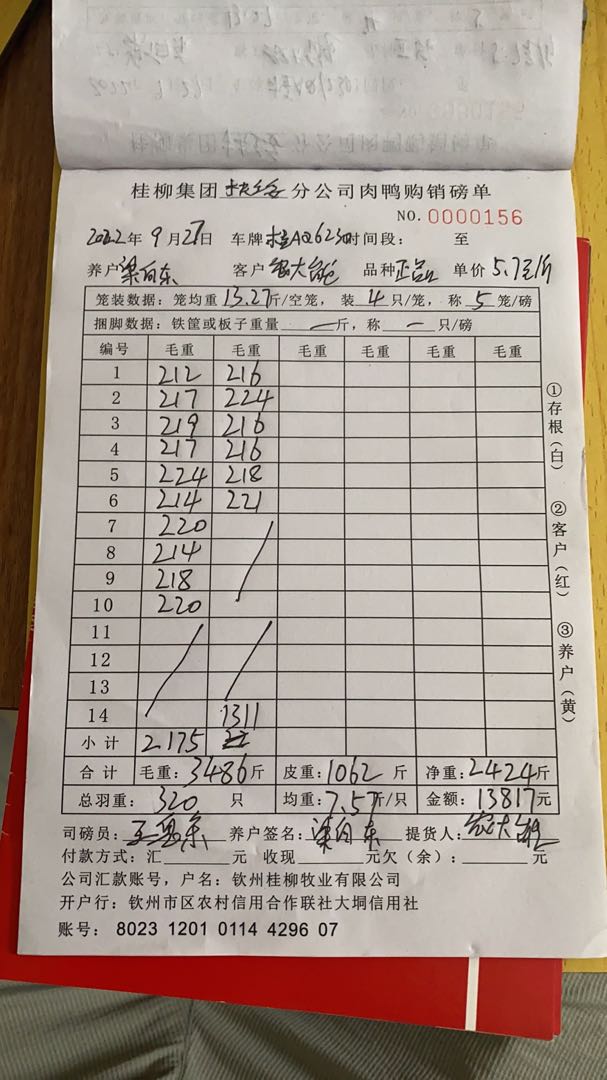 桂柳集团 分公司肉鸭购销磅单
NO. 0000156
2022年9月27日 车牌 桂AQ6230 时间段: 至
养户 梁向东 客户 品种 正品 单价 5.7元/斤
笼装数据: 笼均重 13.27 斤/空笼, 装 4 只/笼, 称 5 笼/磅
捆脚数据: 铁筐或板子重量 — 斤, 称 — 只/磅
编号 毛重 毛重 毛重 毛重 毛重 毛重
1 212 216
2 217 224
3 219 216
4 217 216
5 224 218
6 214 221
7 220
8 214
9 218
10 220
11
12
13
14 1311
小计 2175
合计 毛重: 3486 斤 皮重: 1062 斤 净重: 2424 斤
总羽重: 320 只 均重: 7.57 斤/只 金额: 13817 元
司磅员: 养户签名: 梁向东 提货人:
付款方式: 汇 元 收现 元欠(余): 元
公司汇款账号, 户名: 钦州桂柳牧业有限公司
开户行: 钦州市区农村信用合作联社大垌信用社
账号: 8023 1201 0114 4296 07
①存根(白)
②客户(红)
③养户(黄)